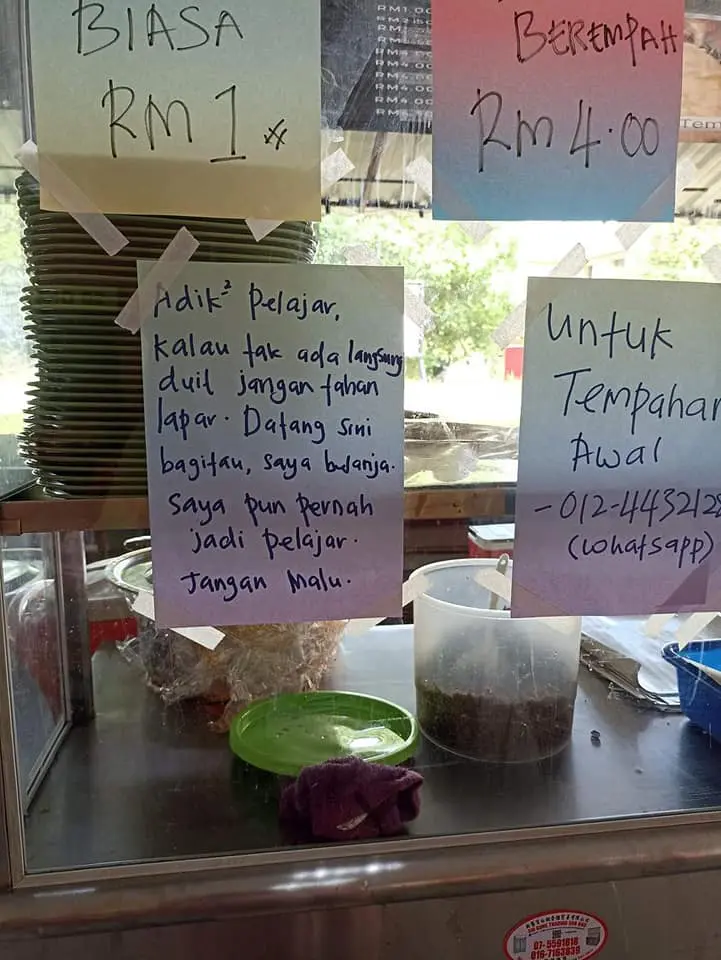 BIASA
RM 1
BEREMPAH
RM 4.00
RM1.00
RM4.00
RM4.00
RM4.00
Tem
Adik² Pelajar,
Kalau tak ada langsung
duit jangan tahan
lapar. Datang sini
bagitau, saya belanja.
Saya pun pernah
jadi pelajar.
Jangan Malu.
Untuk
Tempahan
Awal
-012-4432128
(whatsapp)
07-5591818
016-7163839